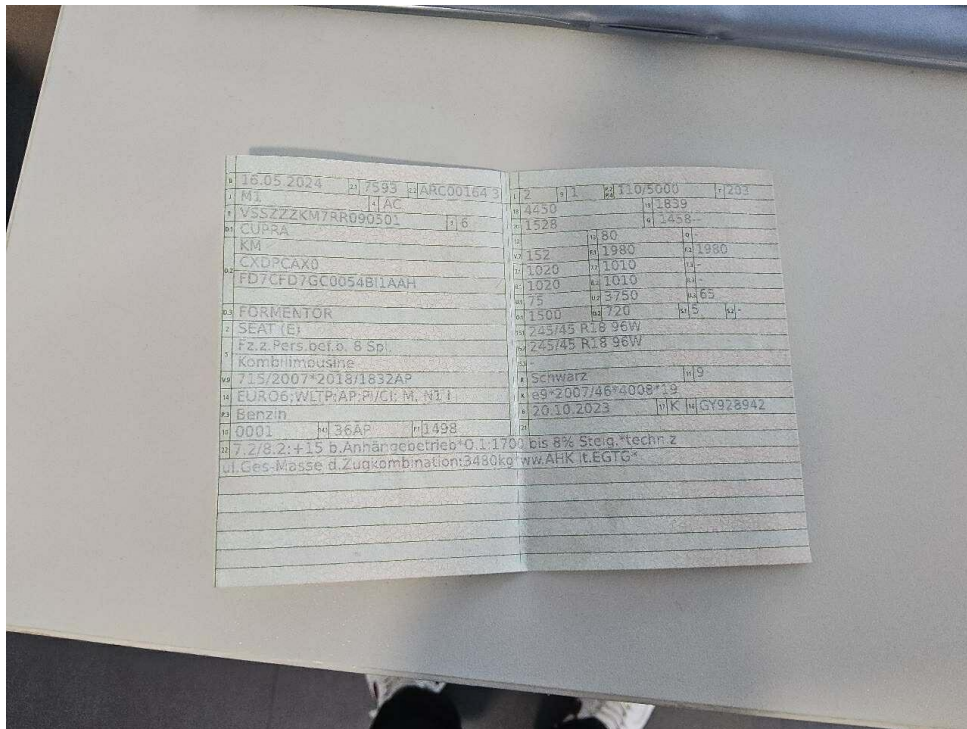 16.05.2024 2.1 7593 2.2 ARC00164 3
M1 4 AC
VSSZZZKM7RR090501 3 6
D.1 CUPRA
KM
D.2 CXDPCAX0
FD7CFD7GC0054BI1AAH
D.3 FORMENTOR
2 SEAT (E)
5 Fz.z.Pers.bef.b. 8 Spl.
Kombilimousine
V.9 715/2007*2018/1832AP
14 EURO6;WLTP;AP;PI/CI; M, N1 I
P.3 Benzin
10 0001 14.1 36AP P.1 1498
22 7.2/8.2:+15 b.Anhängebetrieb*0.1:1700 bis 8% Steig.*techn.z
ul.Ges-Masse d.Zugkombination:3480kg*ww.AHK lt.EGTG*
2 9 1 110/5000 T 203
18 4450 19 1839
20 1528 G 1458-
12 - 13 80 Q -
V.7 152 F.1 1980 F.2 1980
7.1 1020 7.2 1010 7.3 -
8.1 1020 8.2 1010 8.3 -
U.1 75 U.2 3750 U.3 65
O.1 1500 O.2 720 S.1 5 S.2 -
15.1 245/45 R18 96W
15.2 245/45 R18 96W
15.3 -
R Schwarz 11 9
K e9*2007/46*4008*19
6 20.10.2023 17 K 16 GY928942
21